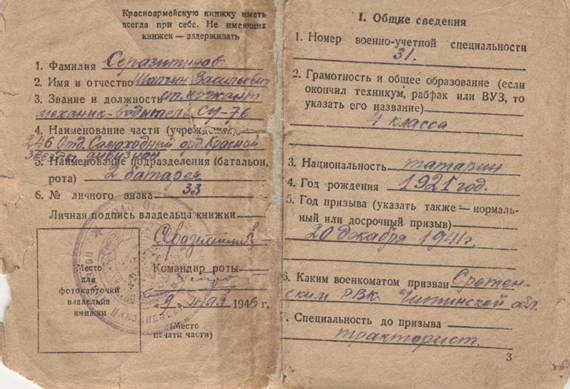 Красноармейскую книжку иметь
всегда при себе. Не имеющих
книжек — задерживать
1. Фамилия Серазитинов
2. Имя и отчество Васильевич
3. Звание и должность ст. сержант
механик-водитель СУ-76
4. Наименование части (учреждения)
246 Отд. Самоходный орд. Красной
Звезды дивизион
5. Наименование подразделения (батальон,
рота) 2 батарея
6. № личного знака 33
Личная подпись владельца книжки
Место
для
фотокарточки
владельца
книжки
Командир роты
9 мая 1945 г.
(Место
печати части)
I. Общие сведения
1. Номер военно-учетной специальности
31.
2. Грамотность и общее образование (если
окончил техникум, рабфак или ВУЗ, то
указать его название)
4 класса
3. Национальность татарин
4. Год рождения 1921 год.
5. Год призыва (указать также — нормаль-
ный или досрочный призыв)
20 декабря 1941 г.
6. Каким военкоматом призван Сретен-
ским РВК Читинской обл.
7. Специальность до призыва
тракторист.
3